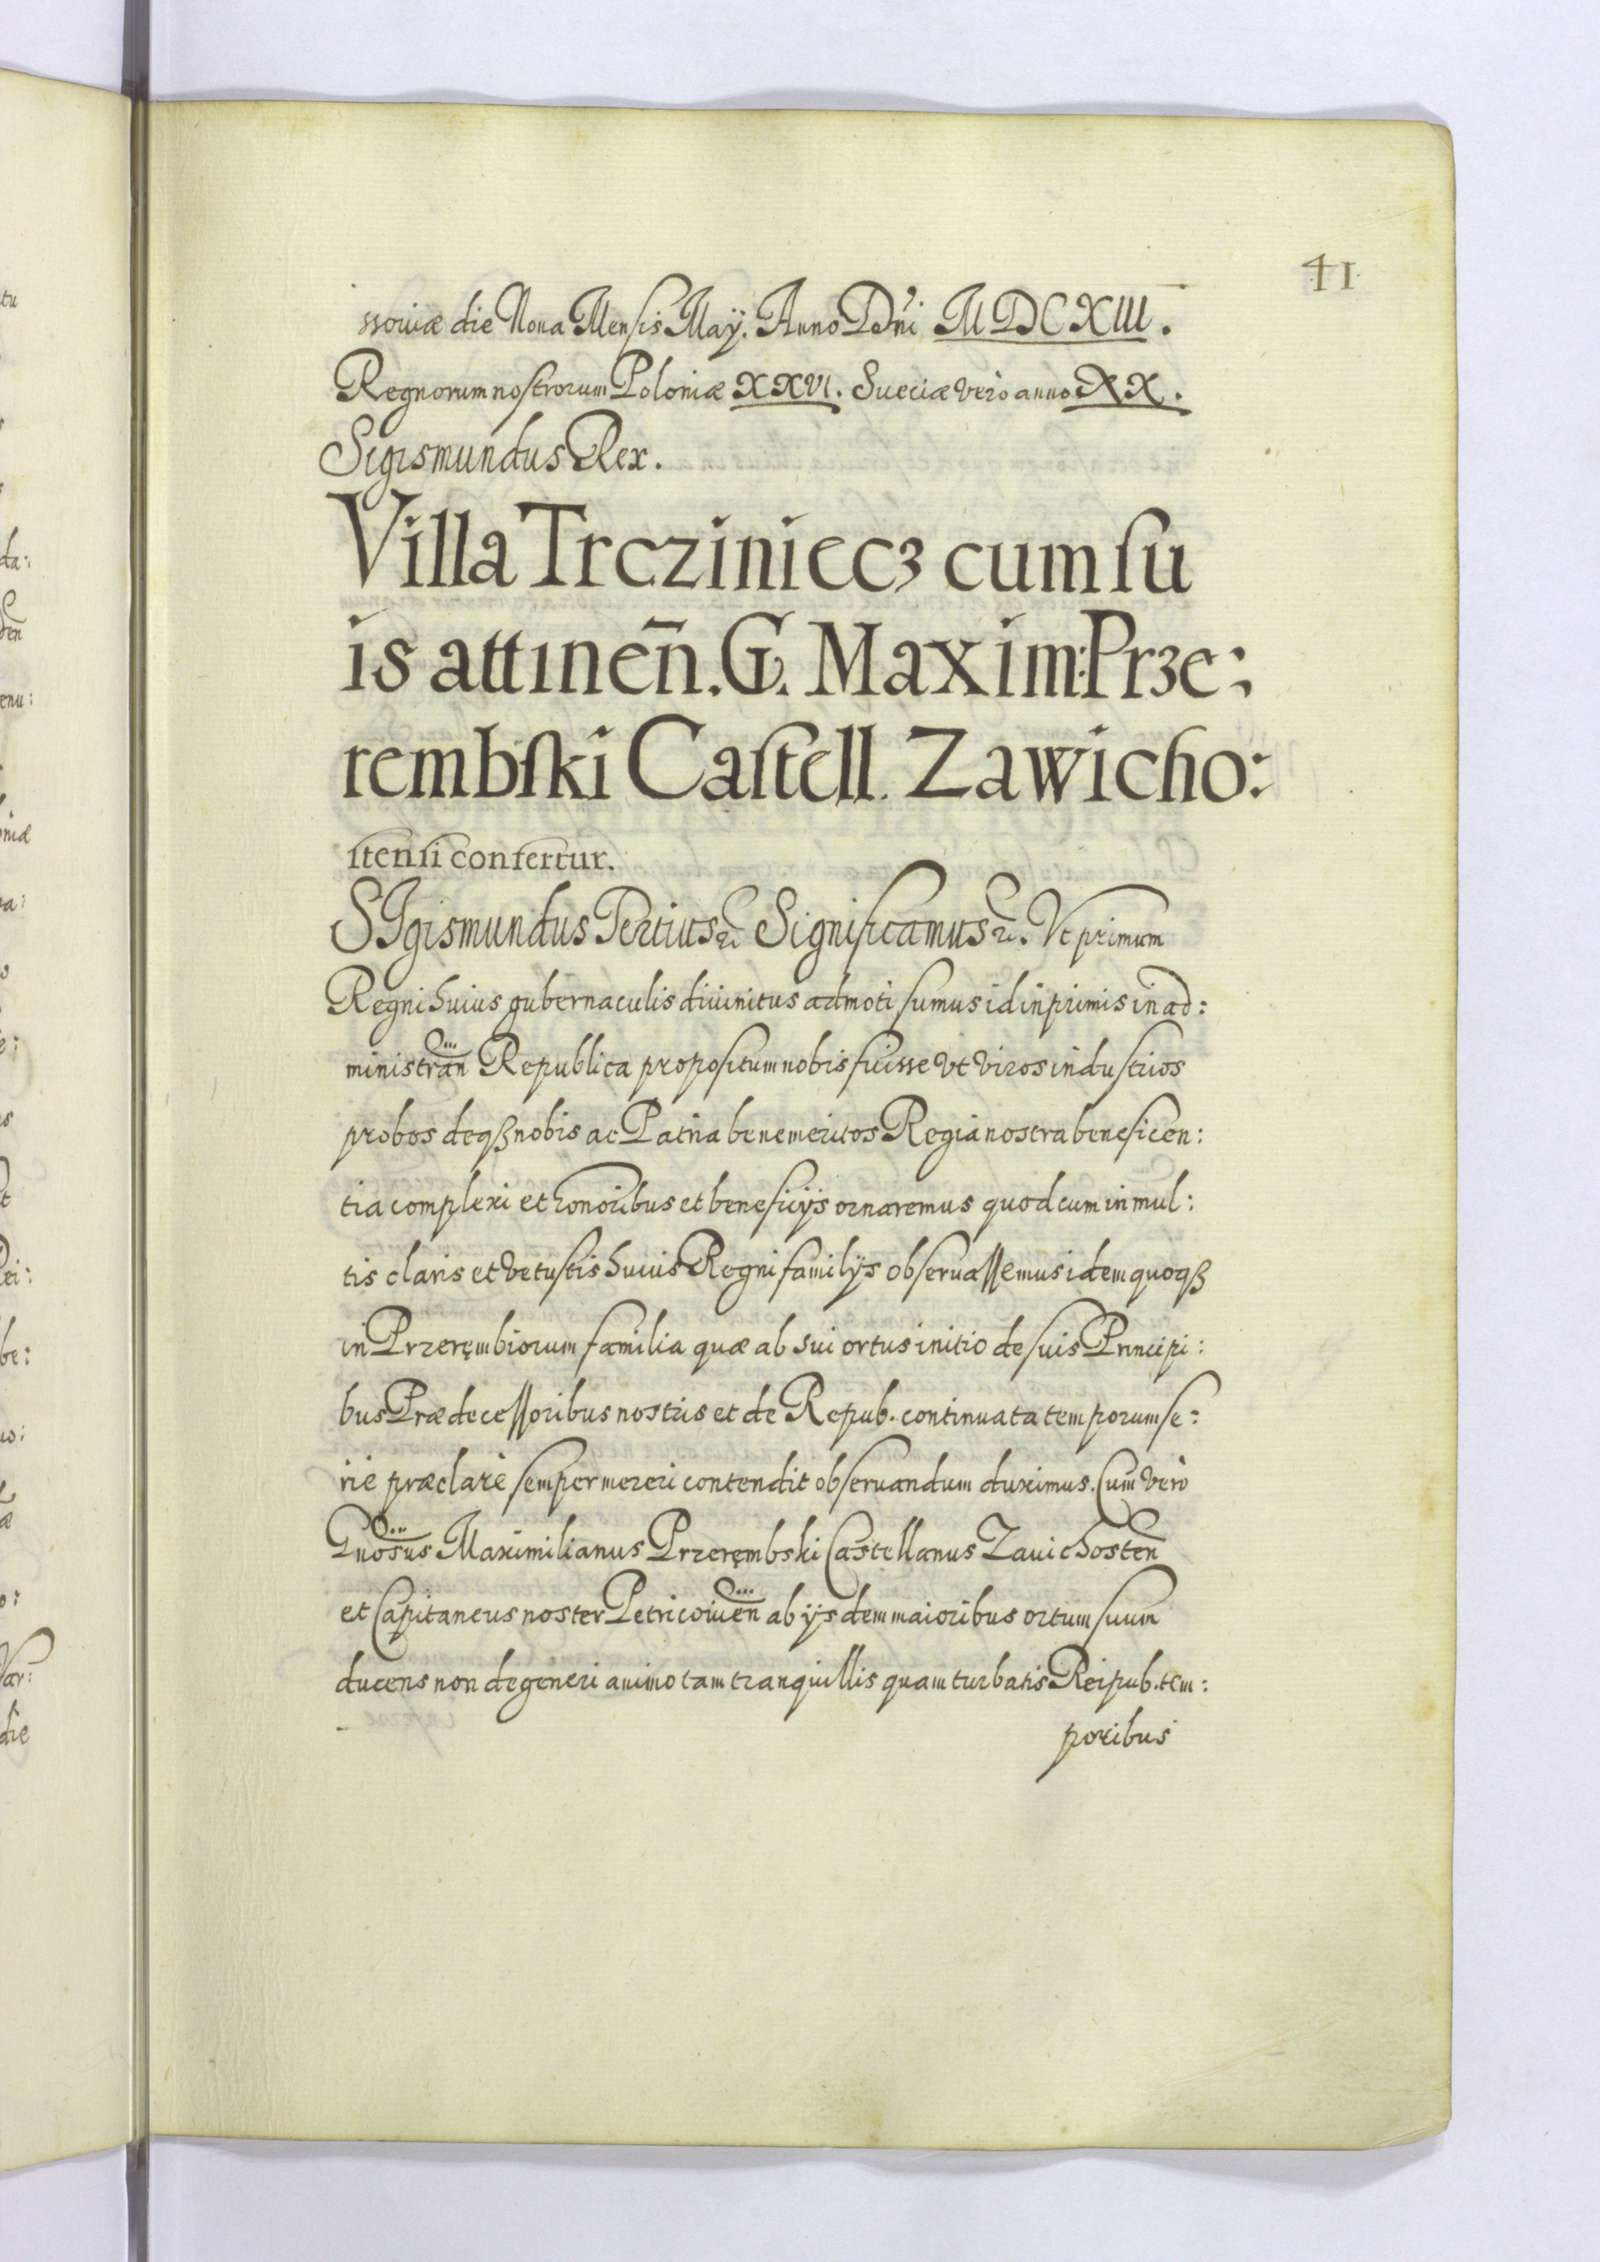 41
ssoviæ die Nona Mensis Maÿ. Anno Dn̄i MDCXIII.
Regnorum nostrorum Poloniæ XXVI. Sueciæ vero anno XX.
Sigismundus Rex.
Villa Trcziniecz cum su
is attinen̄. G. Maxim: Prze:
rembski Castell. Zawicho:
stensi confertur.
SIgismundus Tertius &c. Significamus &c. Vt primum
Regni huius gubernaculis diuinitus admoti sumus id inprimis in ad:
ministran̄ Republica propositum nobis fuisse vt viros industrios
probos deqꝫ nobis ac Patria benemeritos Regia nostra beneficen:
tia complexi et honoribus et beneficijs ornaremus quod cum in mul:
tis claris et vetustis huius Regni familijs obseruassemus idem quoqꝫ
in Przerębiorum familia quæ ab sui ortus initio de suis Principi:
bus Prædecessoribus nostris et de Repub. continuata temporum se:
rie præclarè semper mereri contendit obseruandum duximus. Cum verò
Gn̄osus Maximilianus Przeręmbski Castellanus Zauichosten̄
et Capitaneus noster Petricouien̄ ab ijsdem maioribus ortum suum
ducens non degeneri animo tam tranquillis quam turbatis Reipub. tem:
poribus